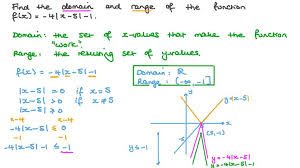 Find the domain and range of the function
f(x) = -4|x-5|-1.
Domain: the set of x-values that make the function
"work".
Range: the resulting set of y-values.
f(x) = -4|x-5|-1
Domain: ℝ
Range: (-∞, -1]
|x-5| > 0 if x ≠ 5
|x-5| = 0 if x = 5
x-4 x-4
-4|x-5| ≤ 0
-1 -1
-4|x-5|-1 ≤ -1
y
y=|x-5|
x
-5
(5,-1)
y ≤ -1
y=-4|x-5|
y=-4|x-5|-1